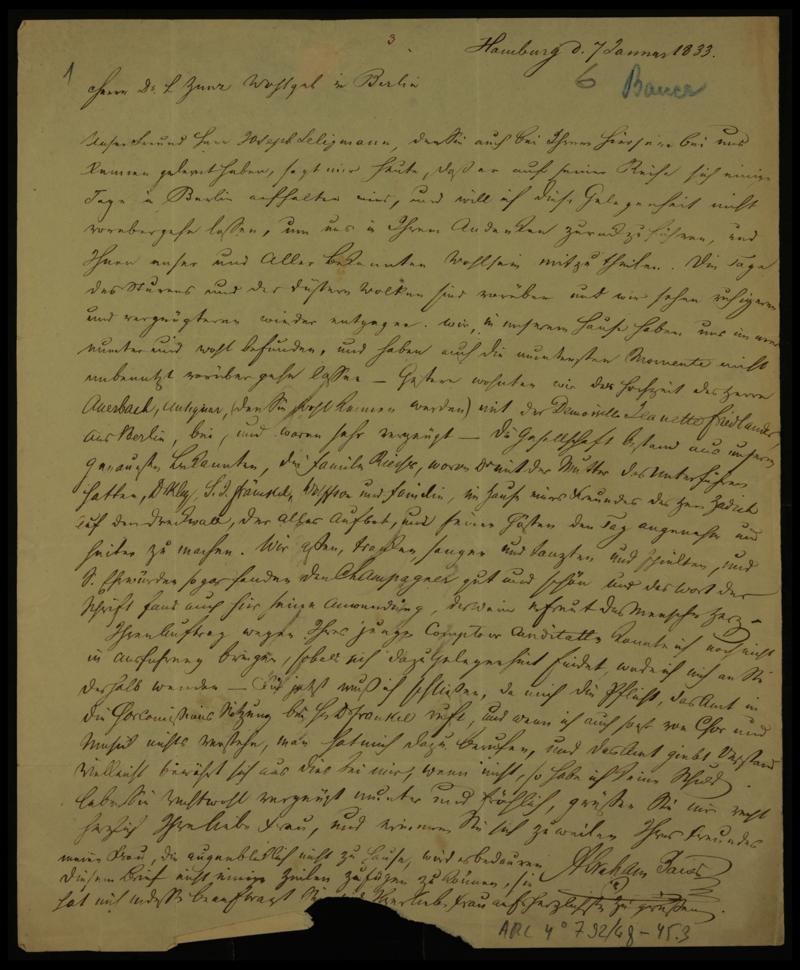 3
Hamburg d. 7 Januar 1833.
1
Herrn Dr. L Zunz Wohlgeb in Berlin
6 Bauer
Unser Freund Herr Joseph Seligmann, den Sie auch bei Ihrem Hiersein bei uns
kennen gelernt haben, sagt mir heute, daß er auf seiner Reise sich einige
Tage in Berlin aufhalten wird, und will ich diese Gelegenheit nicht
vorübergehe lassen, um uns in Ihrem Andenken zurückzuführen, und
Ihnen unser und Aller Bekannten Wohlsein mitzutheilen. Die Tage
des Sturms und der düstern Wolken sind vorüber und wir sehen ruhigeren
und vergnügteren wieder entgegen. Wir, in unserem Hause haben uns immer
munter und wohl befunden, und haben auch die muntersten Momente nicht
unbenutzt vorüber gehe lassen — Gestern wohnten wir der Hochzeit des Herrn
Auerbach, Antiquar, (den Sie wohl kennen werden) mit der Demoiselle Jeanette Friedlander,
aus Berlin, bei, und waren sehr vergnügt — die Gesellschaft bestand aus unsern
genausten Bekannten, die Familie, woran mit der Mutter des Unterführer
hatten, Dr Kley, S. J. Fränckel, Wolffson und Familie, im Hause eines Freundes des Herrn Zadick
auf dem Dreckwall, der Alles aufbot, uns seinen Gästen den Tag angenehm und
heiter zu machen. Wir aßen, tranken, sangen und tanzten und spielten, und
S. Ehrwürden sogar fanden den Champagner gut und schön und das Wort der
Schrift fand auch hier seine Anwendung, der Wein erfreut des Menschen Herz —
Ihren Auftrag wegen Ihres jungen Comptoir Candidaten konnte ich noch nicht
in Ausführung bringen, sobald sich dazu Gelegenheit findet, werde ich mich an Sie
deshalb wenden — Für jetzt muß ich schließen, da mich die Pflicht, das Amt in
die Chorcomissions Sitzung bei H. Dr Fränkel ruft, und wenn ich auch sonst von Chor und
Musik nichts verstehe, man hat mich dazu berufen, und das Amt giebt Verstand
vielleicht bewährt sich auch dies bei mir, wenn nicht, so habe ich keine Schuld.
Leben Sie recht wohl vergnügt munter und fröhlich, grüßen Sie mir recht
herzlich Ihre liebe Frau, und erinnern Sie sich zuweilen Ihres Freundes
Abraham Bauer
meine Frau, die augenblicklich nicht zu Hause, wird es bedauern
diesem Brief nicht einige Zeilen zufügen zu können, sie
hat mich indessen beauftragt Sie und Ihre liebe Frau aufs herzlichste zu grüßen.
ARC 4° 792/G8-45.3